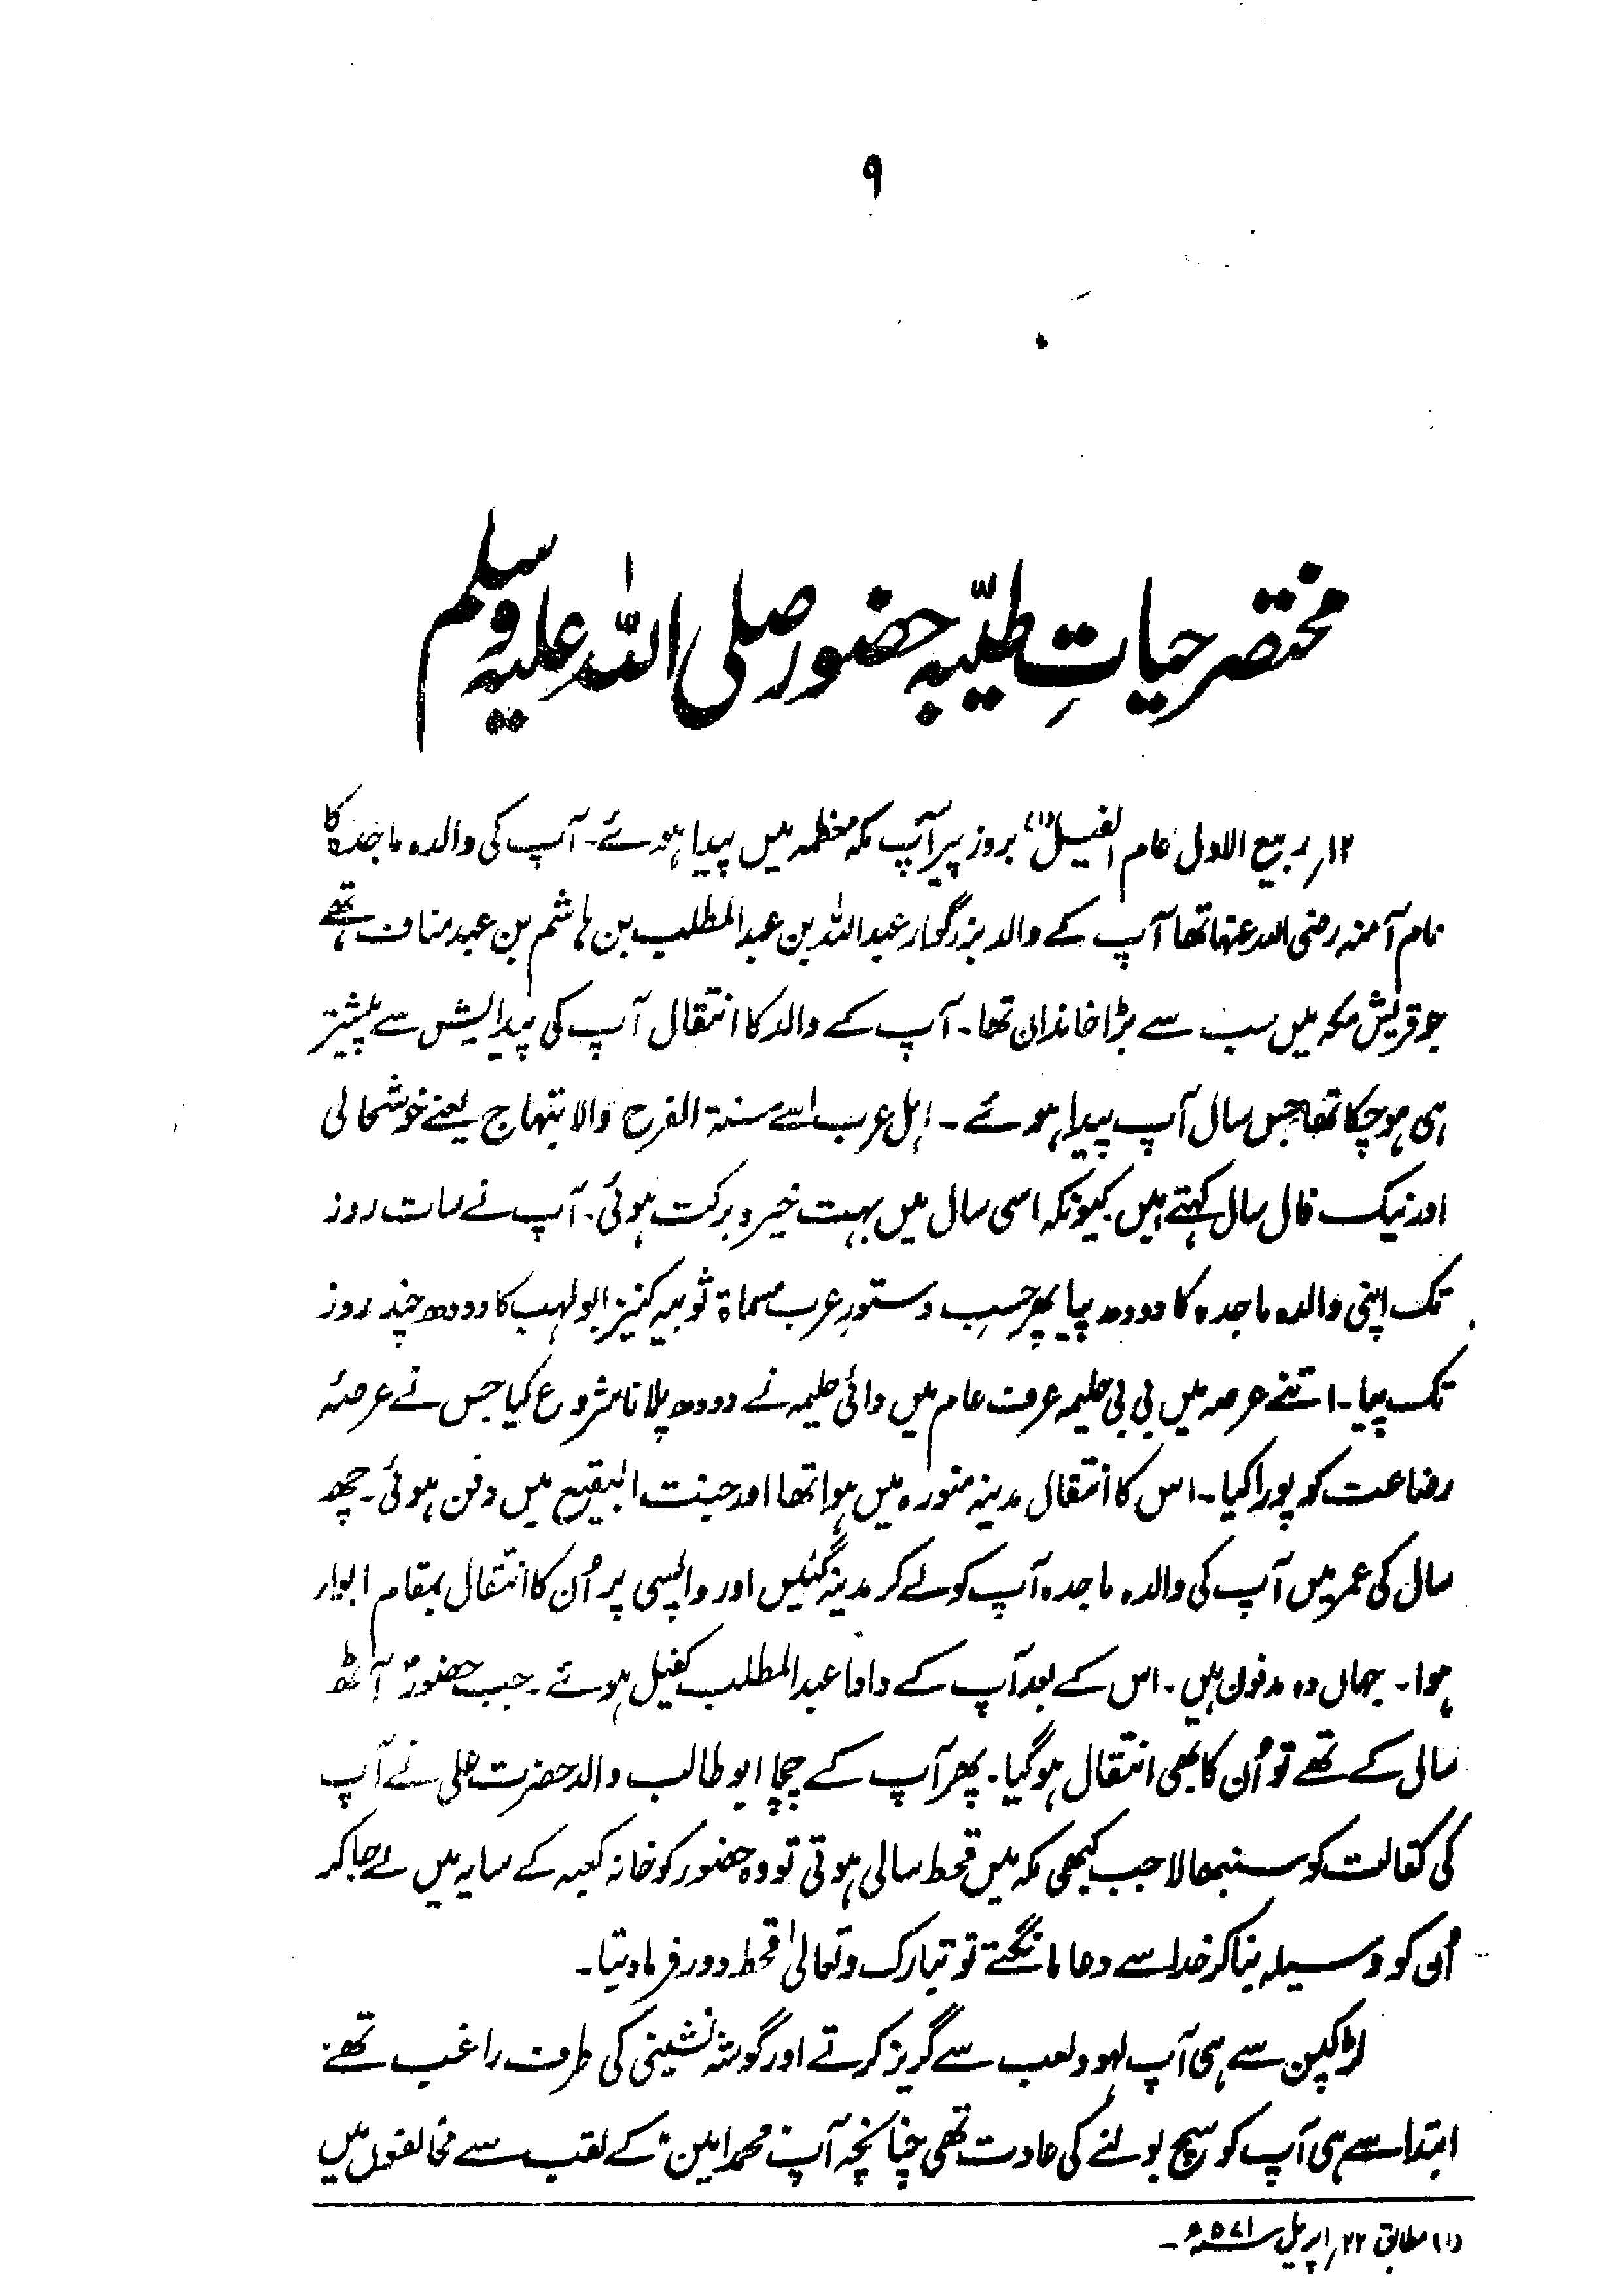 ۹
مختصر حیاتِ طیّبہ حضور صلی اللہ علیہ وسلم
۱۲؍ ربیع الاول عام الفیل (۱) بروز پیر آپ مکہ معظمہ میں پیدا ہوئے۔ آپ کی والدہ ماجدہ کا
نام آمنہ رضی اللہ عنہا تھا آپ کے والد بزرگوار عبداللہ بن عبدالمطلب بن ہاشم بن عبد مناف تھے
جو قریش مکہ میں سب سے بڑا خاندان تھا۔ آپ کے والد کا انتقال آپ کی پیدایش سے پیشتر
ہی ہو چکا تھا جس سال آپ پیدا ہوئے۔ اہل عرب اسے سنۃ الفرح والابتہاج یعنے خوشحالی
اور نیک فال سال کہتے ہیں کیونکہ اسی سال میں بہت خیر و برکت ہوئی۔ آپ نے سات روز
تک اپنی والدہ ماجدہ کا دودھ پیا پھر حسبِ دستورِ عرب مسماۃ ثوبیہ کنیز ابولہب کا دودھ چند روز
تک پیا۔ اتنے عرصہ میں بی بی حلیمہ عرف عام میں دائی حلیمہ نے دودھ پلانا شروع کیا جس نے عرصۂ
رضاعت کو پورا کیا۔ اس کا انتقال مدینہ منورہ میں ہوا تھا اور جنت البقیع میں دفن ہوئی۔ چھ
سال کی عمر میں آپ کی والدہ ماجدہ آپ کو لے کر مدینہ گئیں اور واپسی پر اُن کا انتقال بمقام ابوار
ہوا۔ جہاں وہ مدفون ہیں۔ اس کے بعد آپ کے دادا عبدالمطلب کفیل ہوئے۔ جب حضورؐ آٹھ
سال کے تھے تو اُن کا بھی انتقال ہو گیا۔ پھر آپ کے چچا ابو طالب والد حضرت علی نے آپ
کی کفالت کو سنبھالا جب کبھی مکہ میں قحط سالی ہوتی تو وہ حضور کو خانہ کعبہ کے سایہ میں لے جا کر
اُن کو وسیلہ بنا کر خدا سے دعا مانگتے تو تبارک وتعالیٰ قحط دور فرما دیتا۔
لڑکپن سے ہی آپ لہو و لعب سے گریز کرتے اور گوشہ نشینی کی طرف راغب تھے
ابتدا سے ہی آپ کو سچ بولنے کی عادت تھی چنانچہ آپ "محمد امین" کے لقب سے مخالفوں میں
(۱) مطابق ۲۲؍ اپریل ۵۷۱ء۔